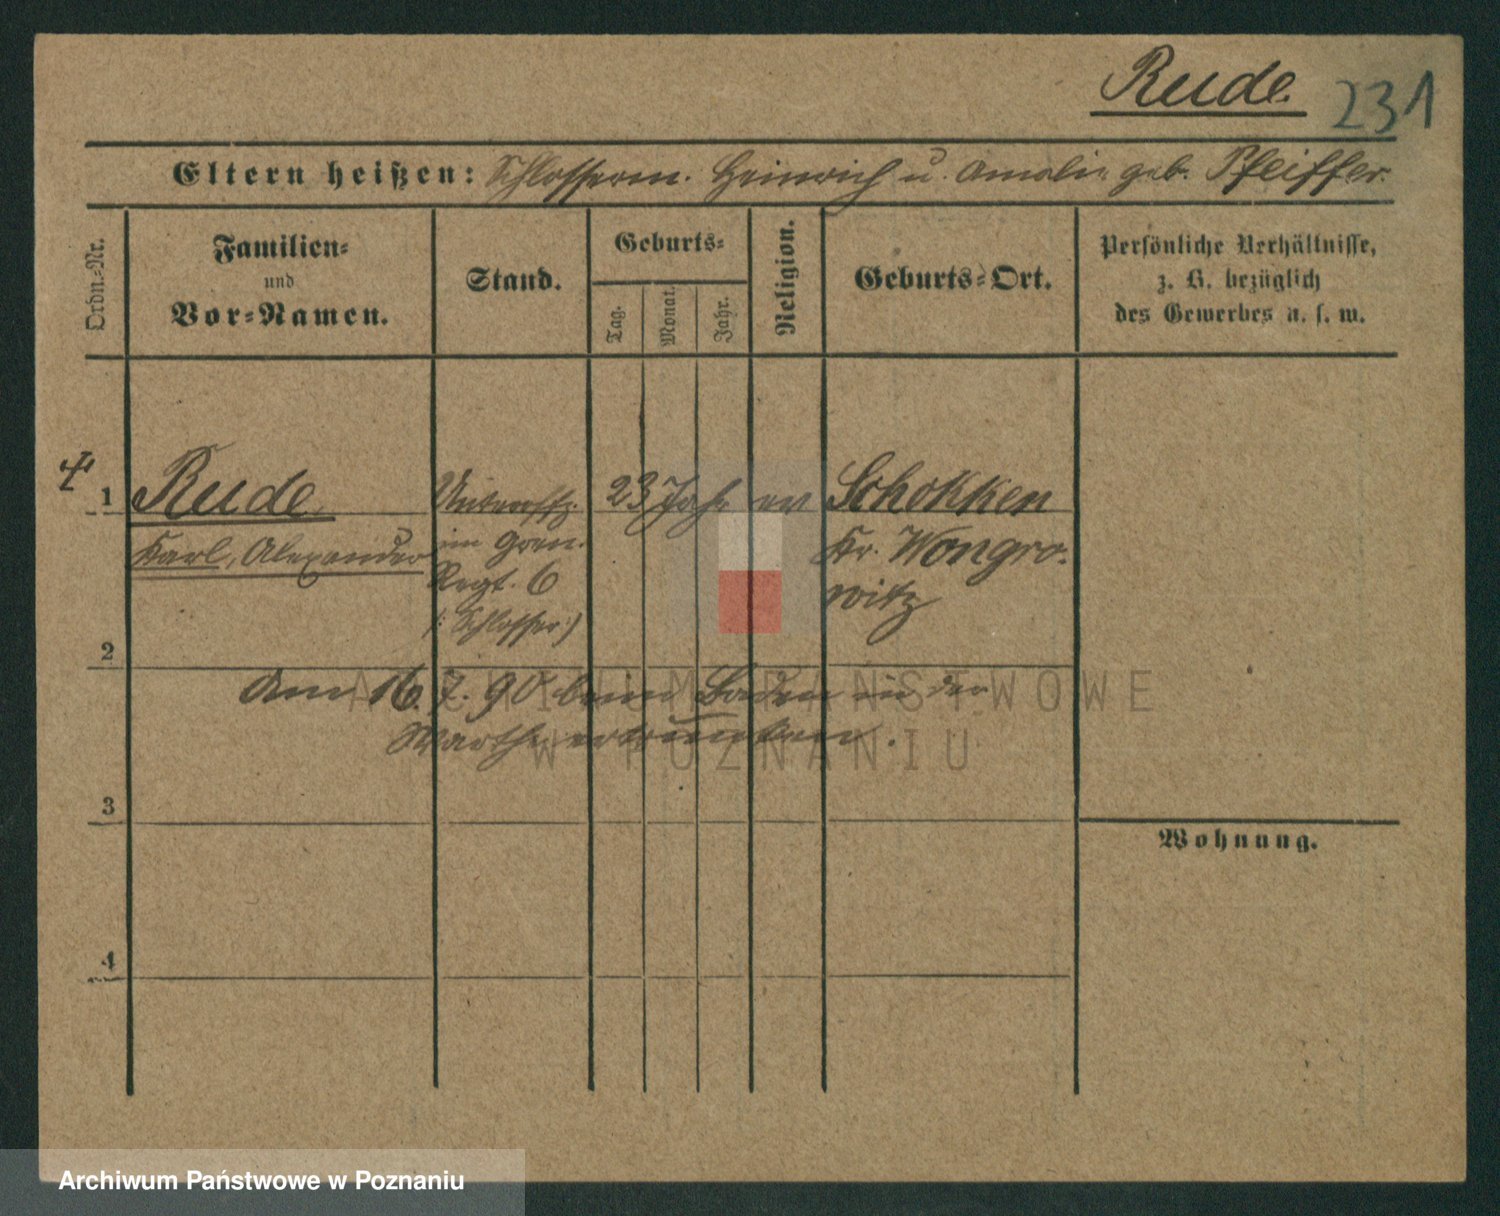 Rude. 231
Eltern heißen: Schlosserm. Heinrich u. Amalie geb. Pfeiffer.
Ordn.-Nr.
Familien-
und
Vor-Namen.
Stand.
Geburts-
Tag.
Monat.
Jahr.
Religion.
Geburts-Ort.
Persönliche Verhältnisse,
z. B. bezüglich
des Gewerbes u. s. w.
1 Rude Unteroffz. 23 Jahr ev Schokken
Karl, Alexander im Gren. Kr. Wongro-
Regt. 6 witz
(: Schlosser :)
2
Am 16. 7. 90 beim Baden in der
Warthe ertrunken.
ARCHIWUM PAŃSTWOWE
W POZNANIU
3
Wohnung.
4
Archiwum Państwowe w Poznaniu